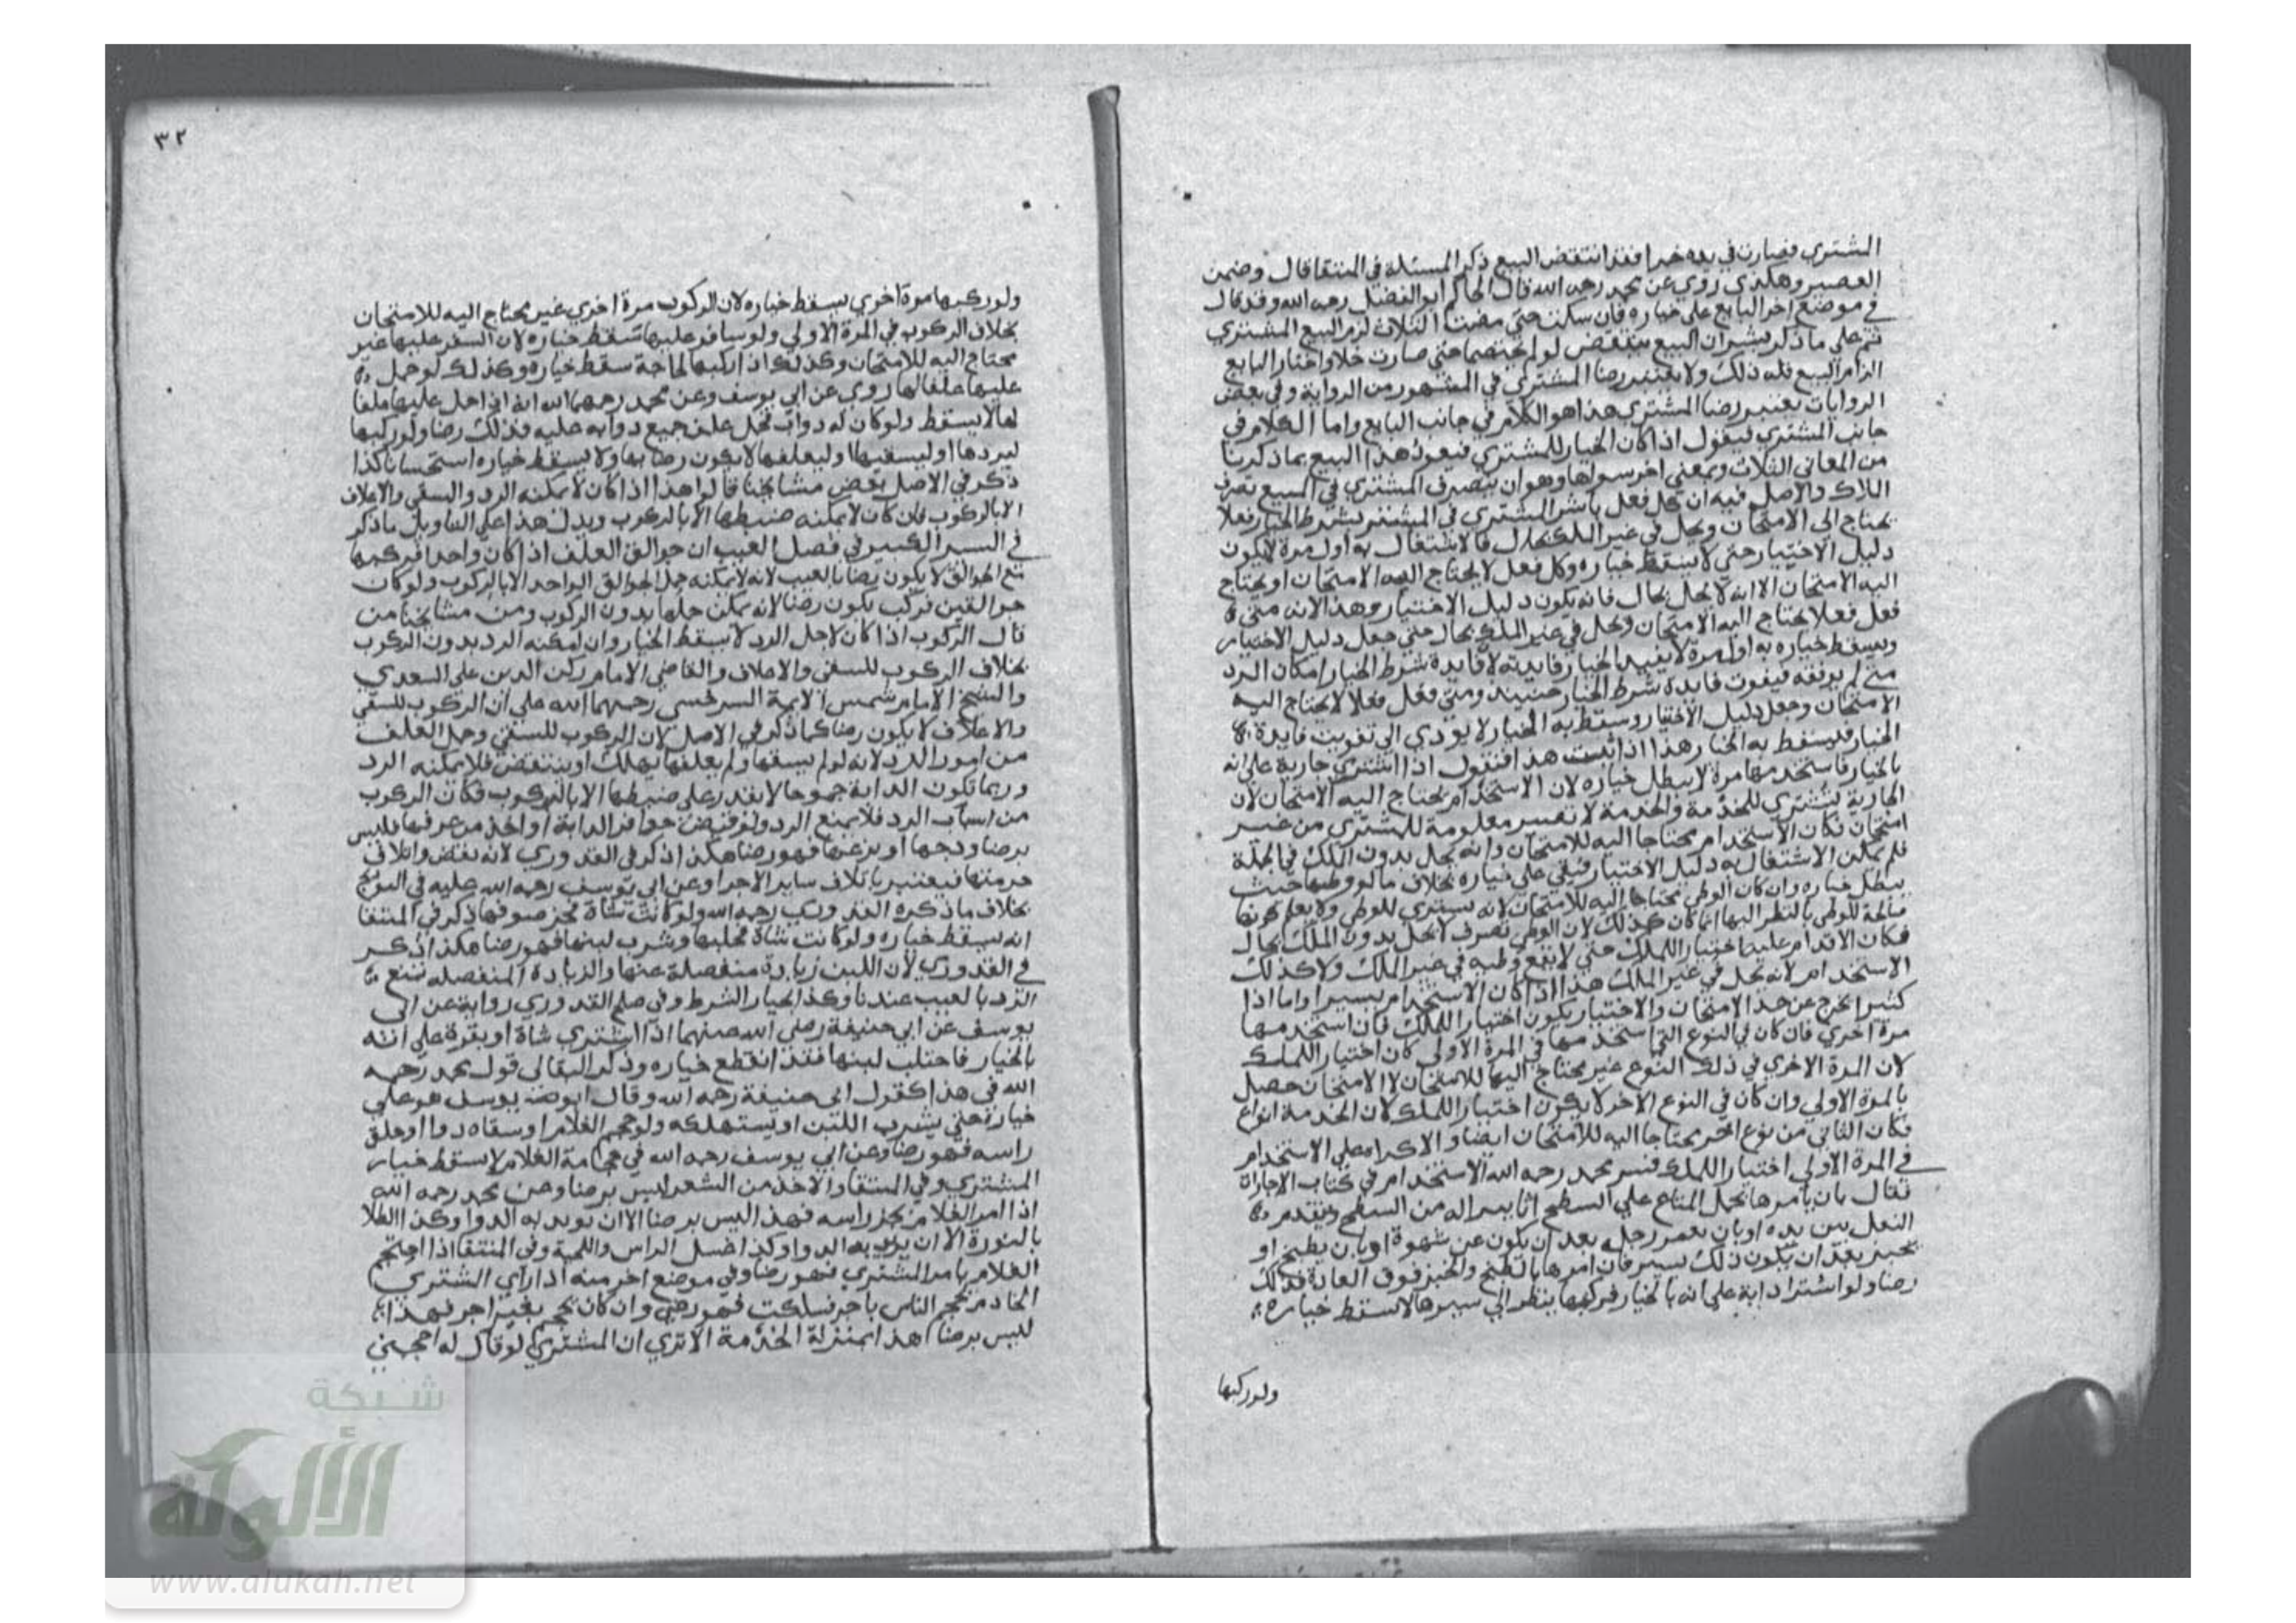 المشتري فصارت في يده خمرا فقد انتقض البيع ذكر المسئلة في المنتقا قال وضمن
العصير وهكذى روي عن محمد رحمه الله قال الحاكم ابو الفضل رحمه الله وقد قال
في موضع اخر البايع على خياره فان سكت حتى مضت الثلاث لزم البيع المشتري
ثم على ما ذكر بشر ان البيع ينتقض لو لم يختصما حتى صارت خلا واختار البايع
الزام البيع فله ذلك ولا يعتبر رضا المشتري في المشهور من الرواية وفي بعض
الروايات يعتبر رضا المشتري هذا هو الكلام في جانب البايع واما الكلام في
جانب المشتري فيقول اذا كان الخيار للمشتري فيعود هذا البيع بما ذكرنا
من المعاني الثلاث وبمعنى اخر سواها وهو ان يتصرف المشتري في المبيع تصرف
الملاك والاصل فيه ان كل فعل باشر المشتري في المشترى بشرط الخيار فعلا
يحتاج الى الامتحان ويحل في غير الملك بحال فالاشتغال به اول مرة لا يكون
دليل الاختيار حتى لا يسقط خياره وكل فعل لا يحتاج اليه الامتحان او يحتاج
اليه الامتحان الا انه لا يحل بحال فانه يكون دليل الاختيار وهذا لانه متى
فعل فعلا يحتاج اليه الامتحان ويحل في غير الملك بحال متى جعل دليل الاختيار
ويسقط خياره به اول مرة لا يفيد الخيار فايدته لا فايدة شرط الخيار امكان الرد
متى لم يوفقه فيفوت فايدة شرط الخيار حينيذ ومتى فعل فعلا لا يحتاج اليه
الامتحان وجعل دليل الاختيار وسقط به الخيار لا يودي الى تفويت فايدة
الخيار فيسقط به الخيار هذا اذا ثبت هذا فنقول اذا اشترى جارية على انه
بالخيار فاستخدمها مرة لا يبطل خياره لان الاستخدام يحتاج اليه الامتحان لان
الجارية تشترى للخدمة والخدمة لا تصير معلومة للمشتري من غير
امتحان فكان الاستخدام محتاجا اليه للامتحان وانه يحل بدون الملك في الجملة
فلم يمكن الاشتغال به دليل الاختيار فبقي على خياره بخلاف ما لو وطيها حيث
يبطل خياره وان كان الوطي محتاجا اليه للامتحان لانه يشتري للوطي ولا يعلم كونها
صالحة للوطي بالنظر اليها انما كان كذلك لان الوطي تصرف لا يحل بدون الملك بحال
فكان الاقدام عليه اختيار للملك حتى لا يقع وطيه في غير الملك ولا كذلك
الاستخدام لانه يحل في غير الملك هذا اذا كان الاستخدام يسيرا واما اذا
كثيرا يخرج عن حد الامتحان والاختيار يكون اختيار للملك فان استخدمها
مرة اخري فان كان في النوع الذي استخدمها في المرة الاولى كان اختيار للملك
لان المرة الاخري في ذلك النوع غير محتاج اليها للامتحان لا الامتحان حصل
بالمرة الاولي وان كان في النوع الاخر لا يكون اختيار للملك لان الخدمة انواع
فكان الثاني من نوع اخر محتاجا اليه للامتحان ايضا والاكراه على الاستخدام
في المرة الاولي اختيار للملك فسر محمد رحمه الله الاستخدام في كتاب الاجاراة
فقال بان يامرها بحمل المتاع علي السطح او من السطح ويقدم
النعل بين يده او بان يغمر رجله بعد ان يكون عن شهوة او بان يطبخ او
يخبز بعد ان يكون ذلك يسير فان امرها بالطبخ والخبز فوق العادة فذلك
رضا ولو اشترا دابة على انه بالخيار فركبها ينظر الي سيرها لا يسقط خياره
ولو ركبها
٣٢
ولو ركبها مرة اخري يسقط خياره لان الركوب مرة اخري غير محتاج اليه للامتحان
بخلاف الركوب في المرة الاولي ولو سافر عليها سقط خياره لان السفر عليها غير
محتاج اليه للامتحان وكذلك اذا ركبها لحاجة سقط خياره وكذلك لو حمل
عليها علفا لها روي عن ابي يوسف وعن محمد رحمهما الله انه اذا حمل عليها علفا
لها لا يسقط ولو كان له دواب فحمل علف جميع دوابه عليه فذلك رضا ولو ركبها
ليردها او ليسقيها او ليعلفها لا يكون رضا بها ولا يسقط خياره استحسانا كذا
ذكر في الاصل بعض مشايخنا قالوا هذا اذا كان لا يمكنه الرد والسقى والاعلاف
الا بالركوب فان كان لا يمكنه ضبطها الا بالركوب ويدل هذا على التاويل ما ذكر
في السير الكبير في فصل العيب ان جوالق العلف اذا كان واحدا فركبها
مع الجوالق لا يكون رضا بالعيب لانه لا يمكنه حمل الجوالق الواحد الا بالركوب ولو كان
جوالقين فركب يكون رضا لانه يمكن حملها بدون الركوب ومن مشايخنا من
قال الركوب اذا كان لاجل الرد لا يسقط الخيار وان امكنه الرد بدون الركوب
بخلاف الركوب للسقى والاعلاف والقاضي الامام ركن الدين علي السعدي
والشيخ الامام شمس الايمة السرخسي رحمهما الله على ان الركوب للسقي
والاعلاف لا يكون رضا كما ذكر في الاصل لان الركوب للسقي وحمل العلف
من امور الرد لانه لو لم يسقها ولم يعلفها يهلك او ينتقض فلا يمكنه الرد
وربما تكون الدابة جموحا لا يقدر على ضبطها الا بالركوب فكان الركوب
من اسباب الرد فلا يمنع الرد ولو قص حوافر الدابة او اخذ من عرفها فليس
برضا ودجها او بزغها فهو رضا هكذا ذكر في القدوري لانه نقض واتلاف
جز منها فيعتبر باتلاف ساير الاجزا وعن ابي يوسف رحمه الله عليه في التودج
بخلاف ما ذكره القدوري رحمه الله ولو كانت شاة فجز صوفها ذكر في المنتقا
انه يسقط خياره ولو كانت شاة فحلبها وشرب لبنها فهو رضا هكذا ذكر
في القدوري لان اللبن زيادة منفصلة عنها والزيادة المنفصله تمنع
الرد بالعيب عندنا وكذا الخيار الشرط وفي صلح القدوري رواية عن ابي
يوسف عن ابي حنيفة رضى الله عنهما اذا اشتري شاة او بقرة على انه
بالخيار فاحتلب لبنها فقد انقطع خياره وذكر البقالى قول محمد رحمه
الله في هذا كقول ابى حنيفة رحمه الله وقال ابو يوسف هو على
خياره حتى يشرب اللبن او يستهلكه ولو حجم الغلام او سقاه دوا او حلق
راسه فهو رضا وعن ابي يوسف رحمه الله في حجامة الغلام لا يسقط خيار
المشتري وفي المنتقا والاخذ من الشعر ليس برضا وعن محمد رحمه الله
اذا امر الغلام بجز راسه فهذا ليس برضا الا ان يريد به الدوا وكذا الطلا
بالنورة الا ان يريد به الدوا وكذا غسل الراس واللحية وفي المنتقا اذا احتجم
الغلام بامر المشتري فهو رضا وفي موضع اخر منه اذا راي المشتري
الخادم يحجم الناس باجر فسكت فهو رضي وان كان يحجم بغير اجر فهذا
ليس برضا هذا بمنزلة الخدمة الا تري ان المشتري لو قال له احجمني
شبكة
الألوكة
www.alukah.net